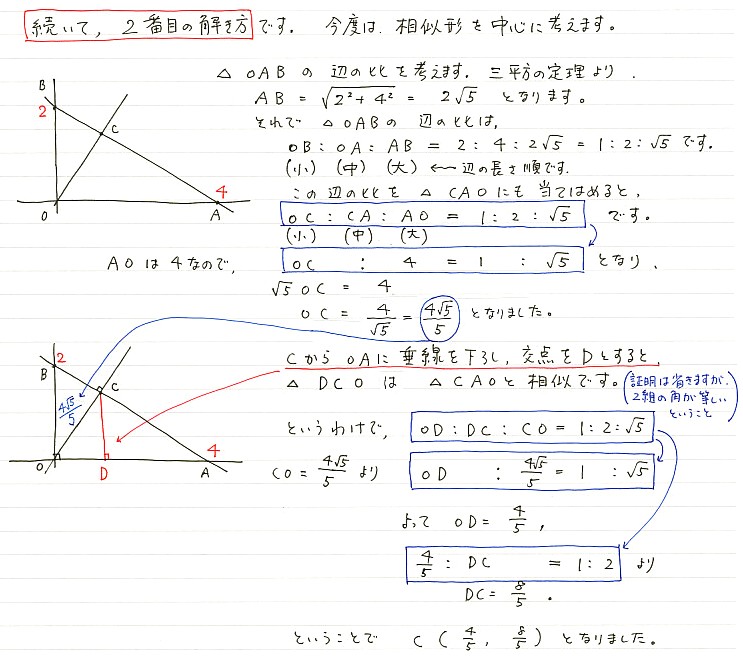 続いて, 2番目の解き方です。 今度は, 相似形を中心に考えます。
△OABの辺の比を考えます。三平方の定理より,
AB = √(2²+4²) = 2√5 となります。
それで△OABの辺の比は,
OB:OA:AB = 2:4:2√5 = 1:2:√5 です。
(小) (中) (大) ←辺の長さ順です。
この辺の比を△CAOにも当てはめると,
OC:CA:AO = 1:2:√5 です。
(小) (中) (大)
AOは4なので, OC : 4 = 1 : √5 となり,
√5 OC = 4
OC = 4/√5 = 4√5/5 となりました。
B
2
C
4
O
A
CからOAに垂線を下ろし, 交点をDとすると,
△DCOは△CAOと相似です。(証明は省きますが, 2組の角が等しいということ)
というわけで, OD:DC:CO = 1:2:√5
CO = 4√5/5 より OD : 4√5/5 = 1 : √5
よって OD = 4/5 ,
4/5 : DC = 1:2 より
DC = 8/5 .
ということで C(4/5, 8/5) となりました。
2
B
C
4√5/5
4
O
D
A